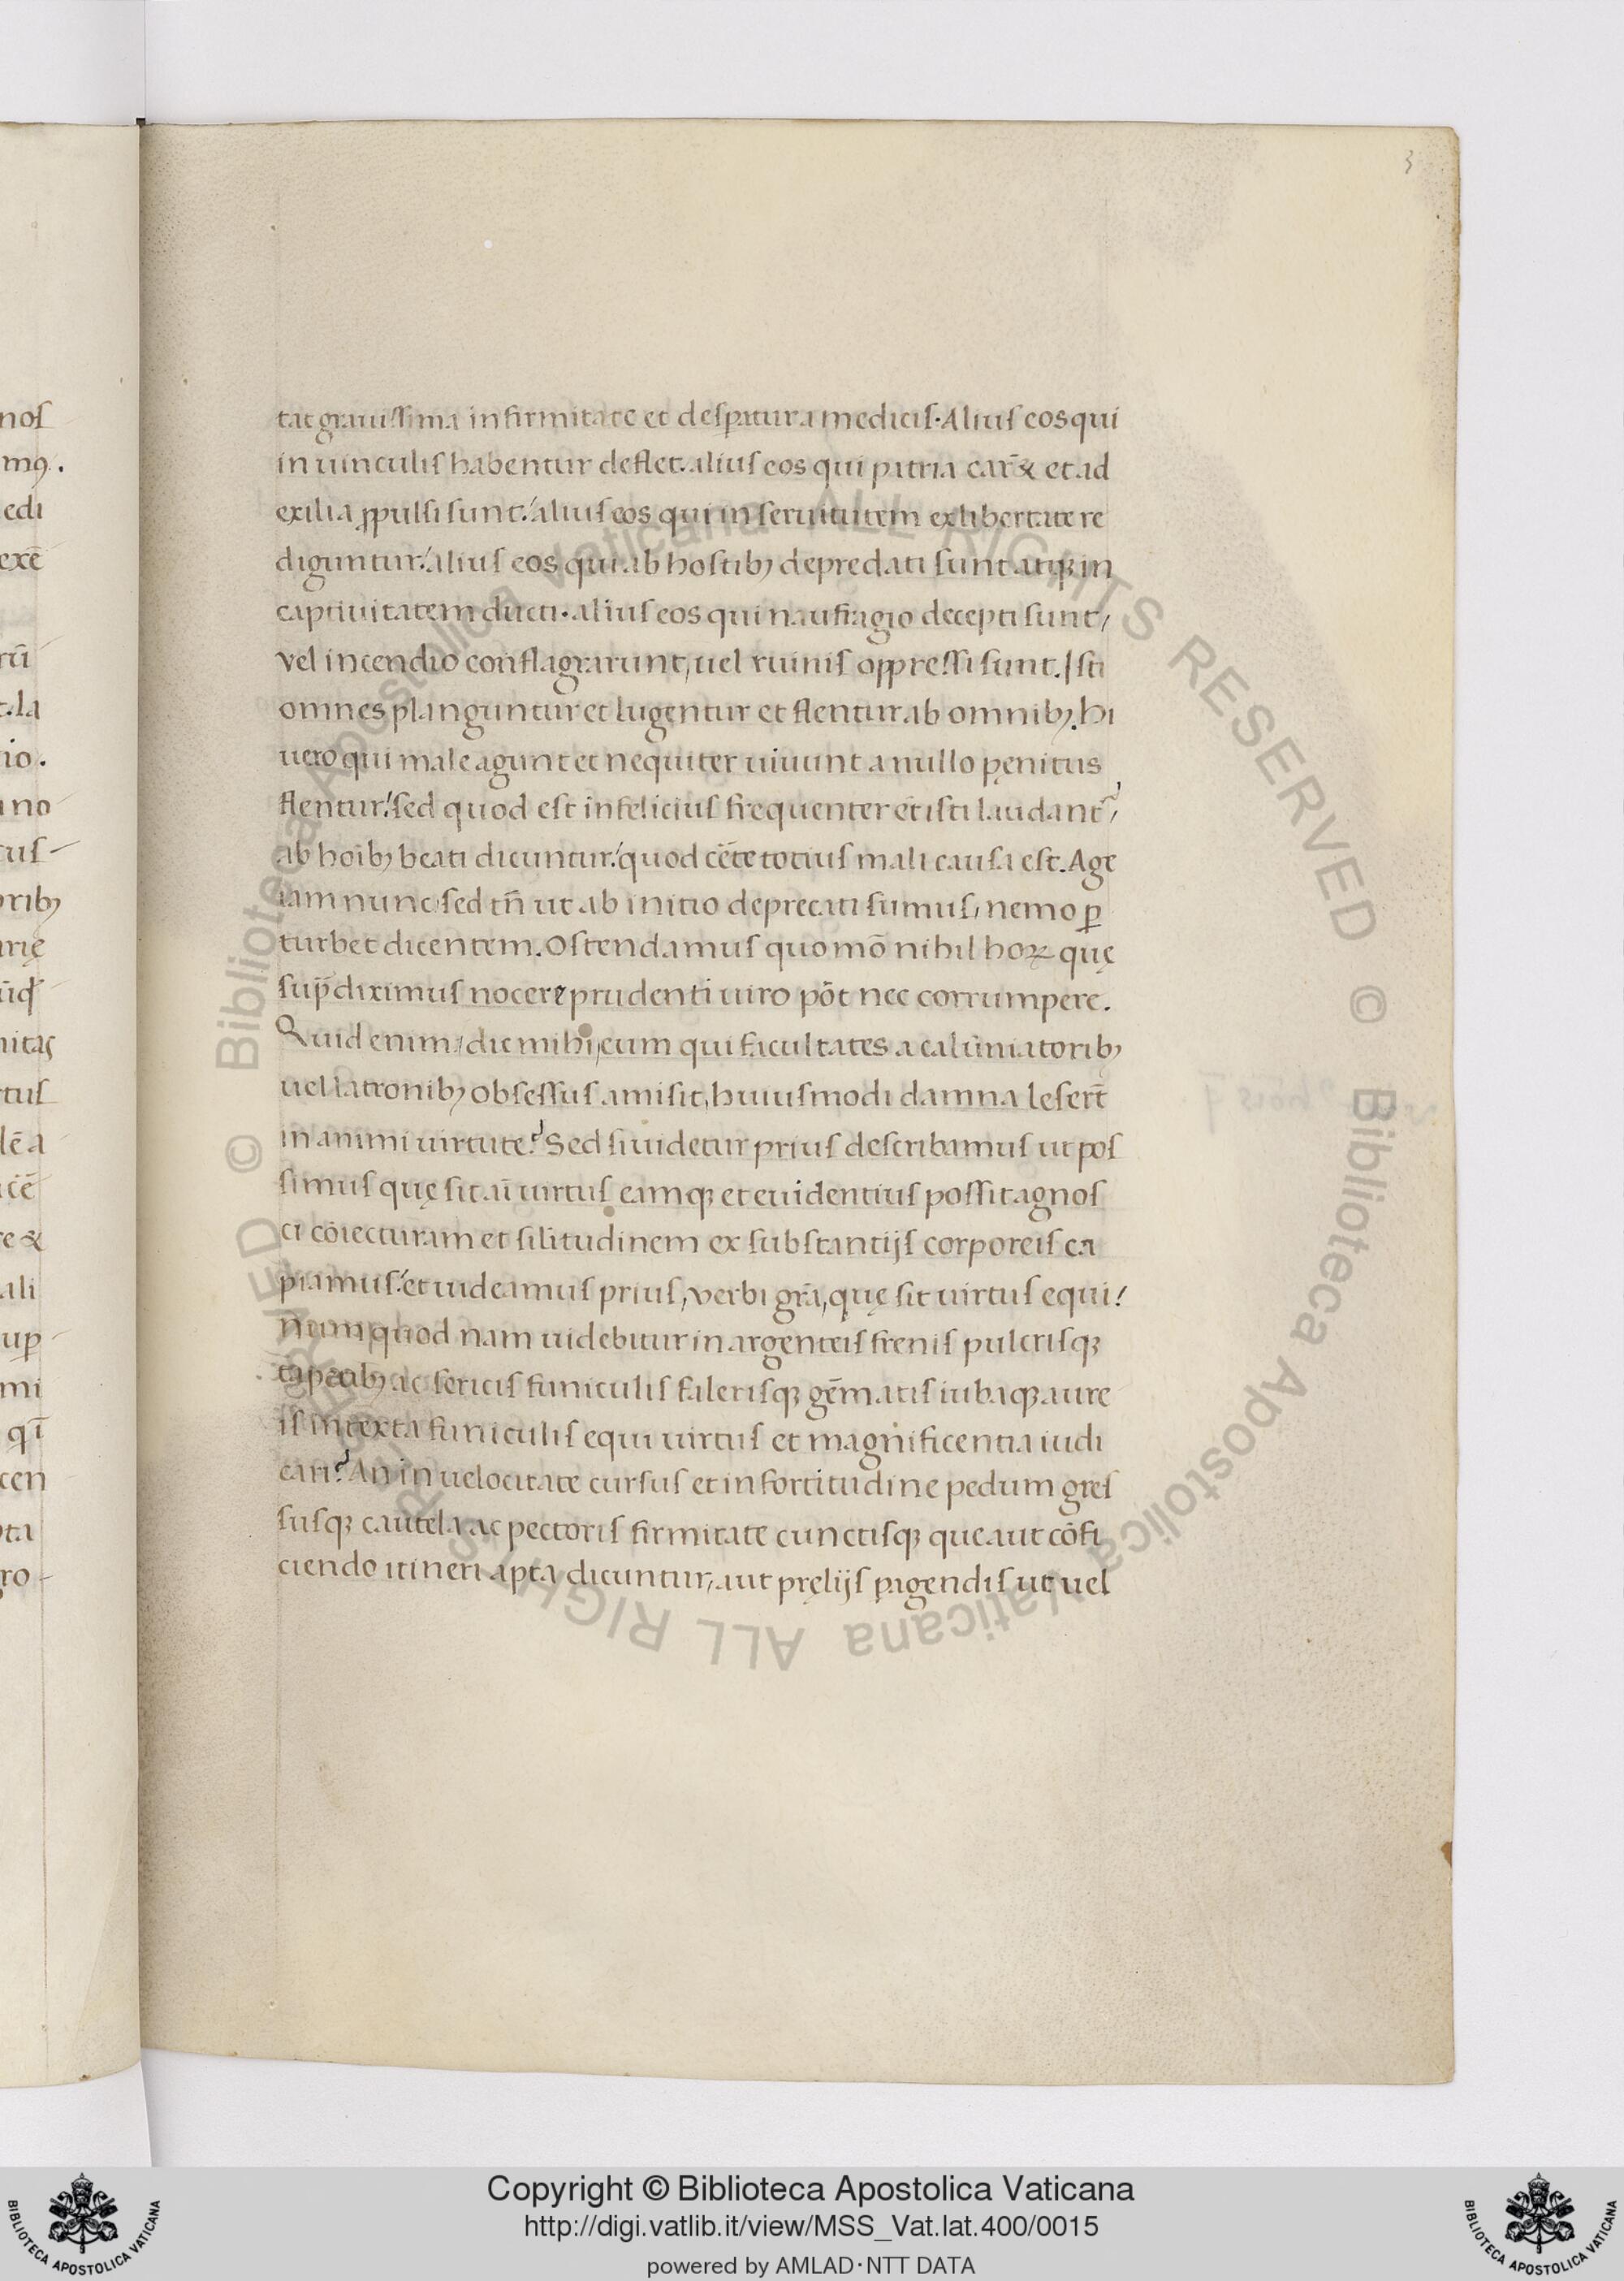 3
tat grauissima infirmitate et despatura medicis. Alius eos qui
in uinculis habentur deflet. alius eos qui patria car̄& et ad
exilia ꝓpulsi sunt. alius eos qui in seruitutem ex libertate re
diguntur. alius eos qui ab hostibꝫ depredati sunt atqꝫ in
captiuitatem ducti. alius eos qui naufragio decepti sunt,
vel incendio conflagrarunt, uel ruinis oppressi sunt. Isti
omnes planguntur et lugentur et flentur ab omnibꝫ. hi
uero qui male agunt et nequiter uiuunt a nullo pęnitus
flentur. sed quod est infelicius frequenter et̄ isti laudant᷑,
ab hoībꝫ beati dicuntur. quod cēte totius mali causa est. Age
iam nunc sed tn̄ ut ab initio deprecati sumus, nemo ꝑ
turbet dicentem. Ostendamus quomō nihil hoꝝ quę
sup̄diximus nocere prudenti uiro pōt nec corrumpere.
Quid enim, dic mihi, eum qui facultates a calūniatoribꝫ
uel latronibꝫ obsessus amisit, huiusmodi damna leser̄t
in animi uirtute? Sed si uidetur prius describamus ut pos
simus quę sit aī uirtus eamqꝫ et euidentius possit agnos
ci cōiecturam et sil̄itudinem ex substantijs corporeis ca
piamus. et uideamus prius, verbi grā, quę sit uirtus equi!
num quod nam uidebitur in argenteis frenis pulcrisqꝫ
tapetibꝫ ac sericis funiculis falerisqꝫ gēmatis iubaqꝫ aure
is intexta funiculis equi uirtus et magnificentia iudi
cari? An in uelocitate cursus et in fortitudine pedum gres
susqꝫ cautela ac pectoris firmitate cunctisqꝫ que aut cōfi
ciendo itineri apta dicuntur, aut pręlijs ꝑagendis ut uel
Copyright © Biblioteca Apostolica Vaticana
http://digi.vatlib.it/view/MSS_Vat.lat.400/0015
powered by AMLAD·NTT DATA